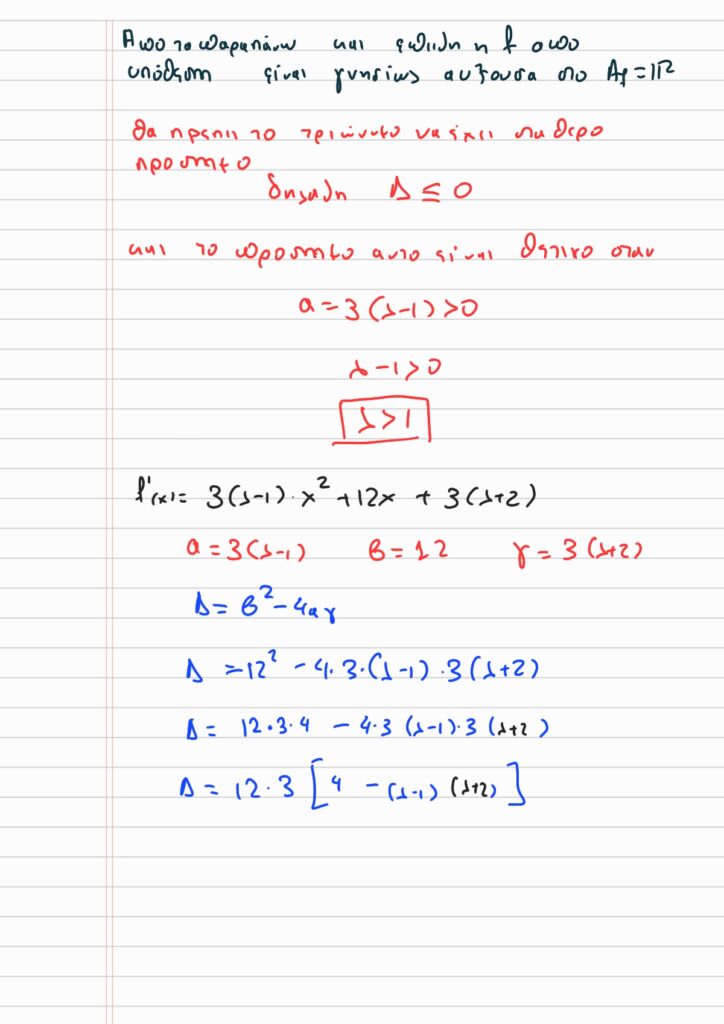 Απο τα παραπάνω και επειδη η f απο
υπόθεση είναι γνησίως αυξουσα στο Af = ℝ
θα πρεπει το τριώνυμο να έχει σταθερο
προσημο
δηλαδη Δ ≤ 0
και το προσημο αυτο είναι θετικο οταν
α = 3(λ-1) > 0
λ - 1 > 0
λ > 1
f'(x) = 3(λ-1)·x² + 12x + 3(λ+2)
α = 3(λ-1) β = 12 γ = 3(λ+2)
Δ = β² - 4αγ
Δ = 12² - 4·3·(λ-1)·3(λ+2)
Δ = 12·3·4 - 4·3(λ-1)·3(λ+2)
Δ = 12·3[4 - (λ-1)(λ+2)]